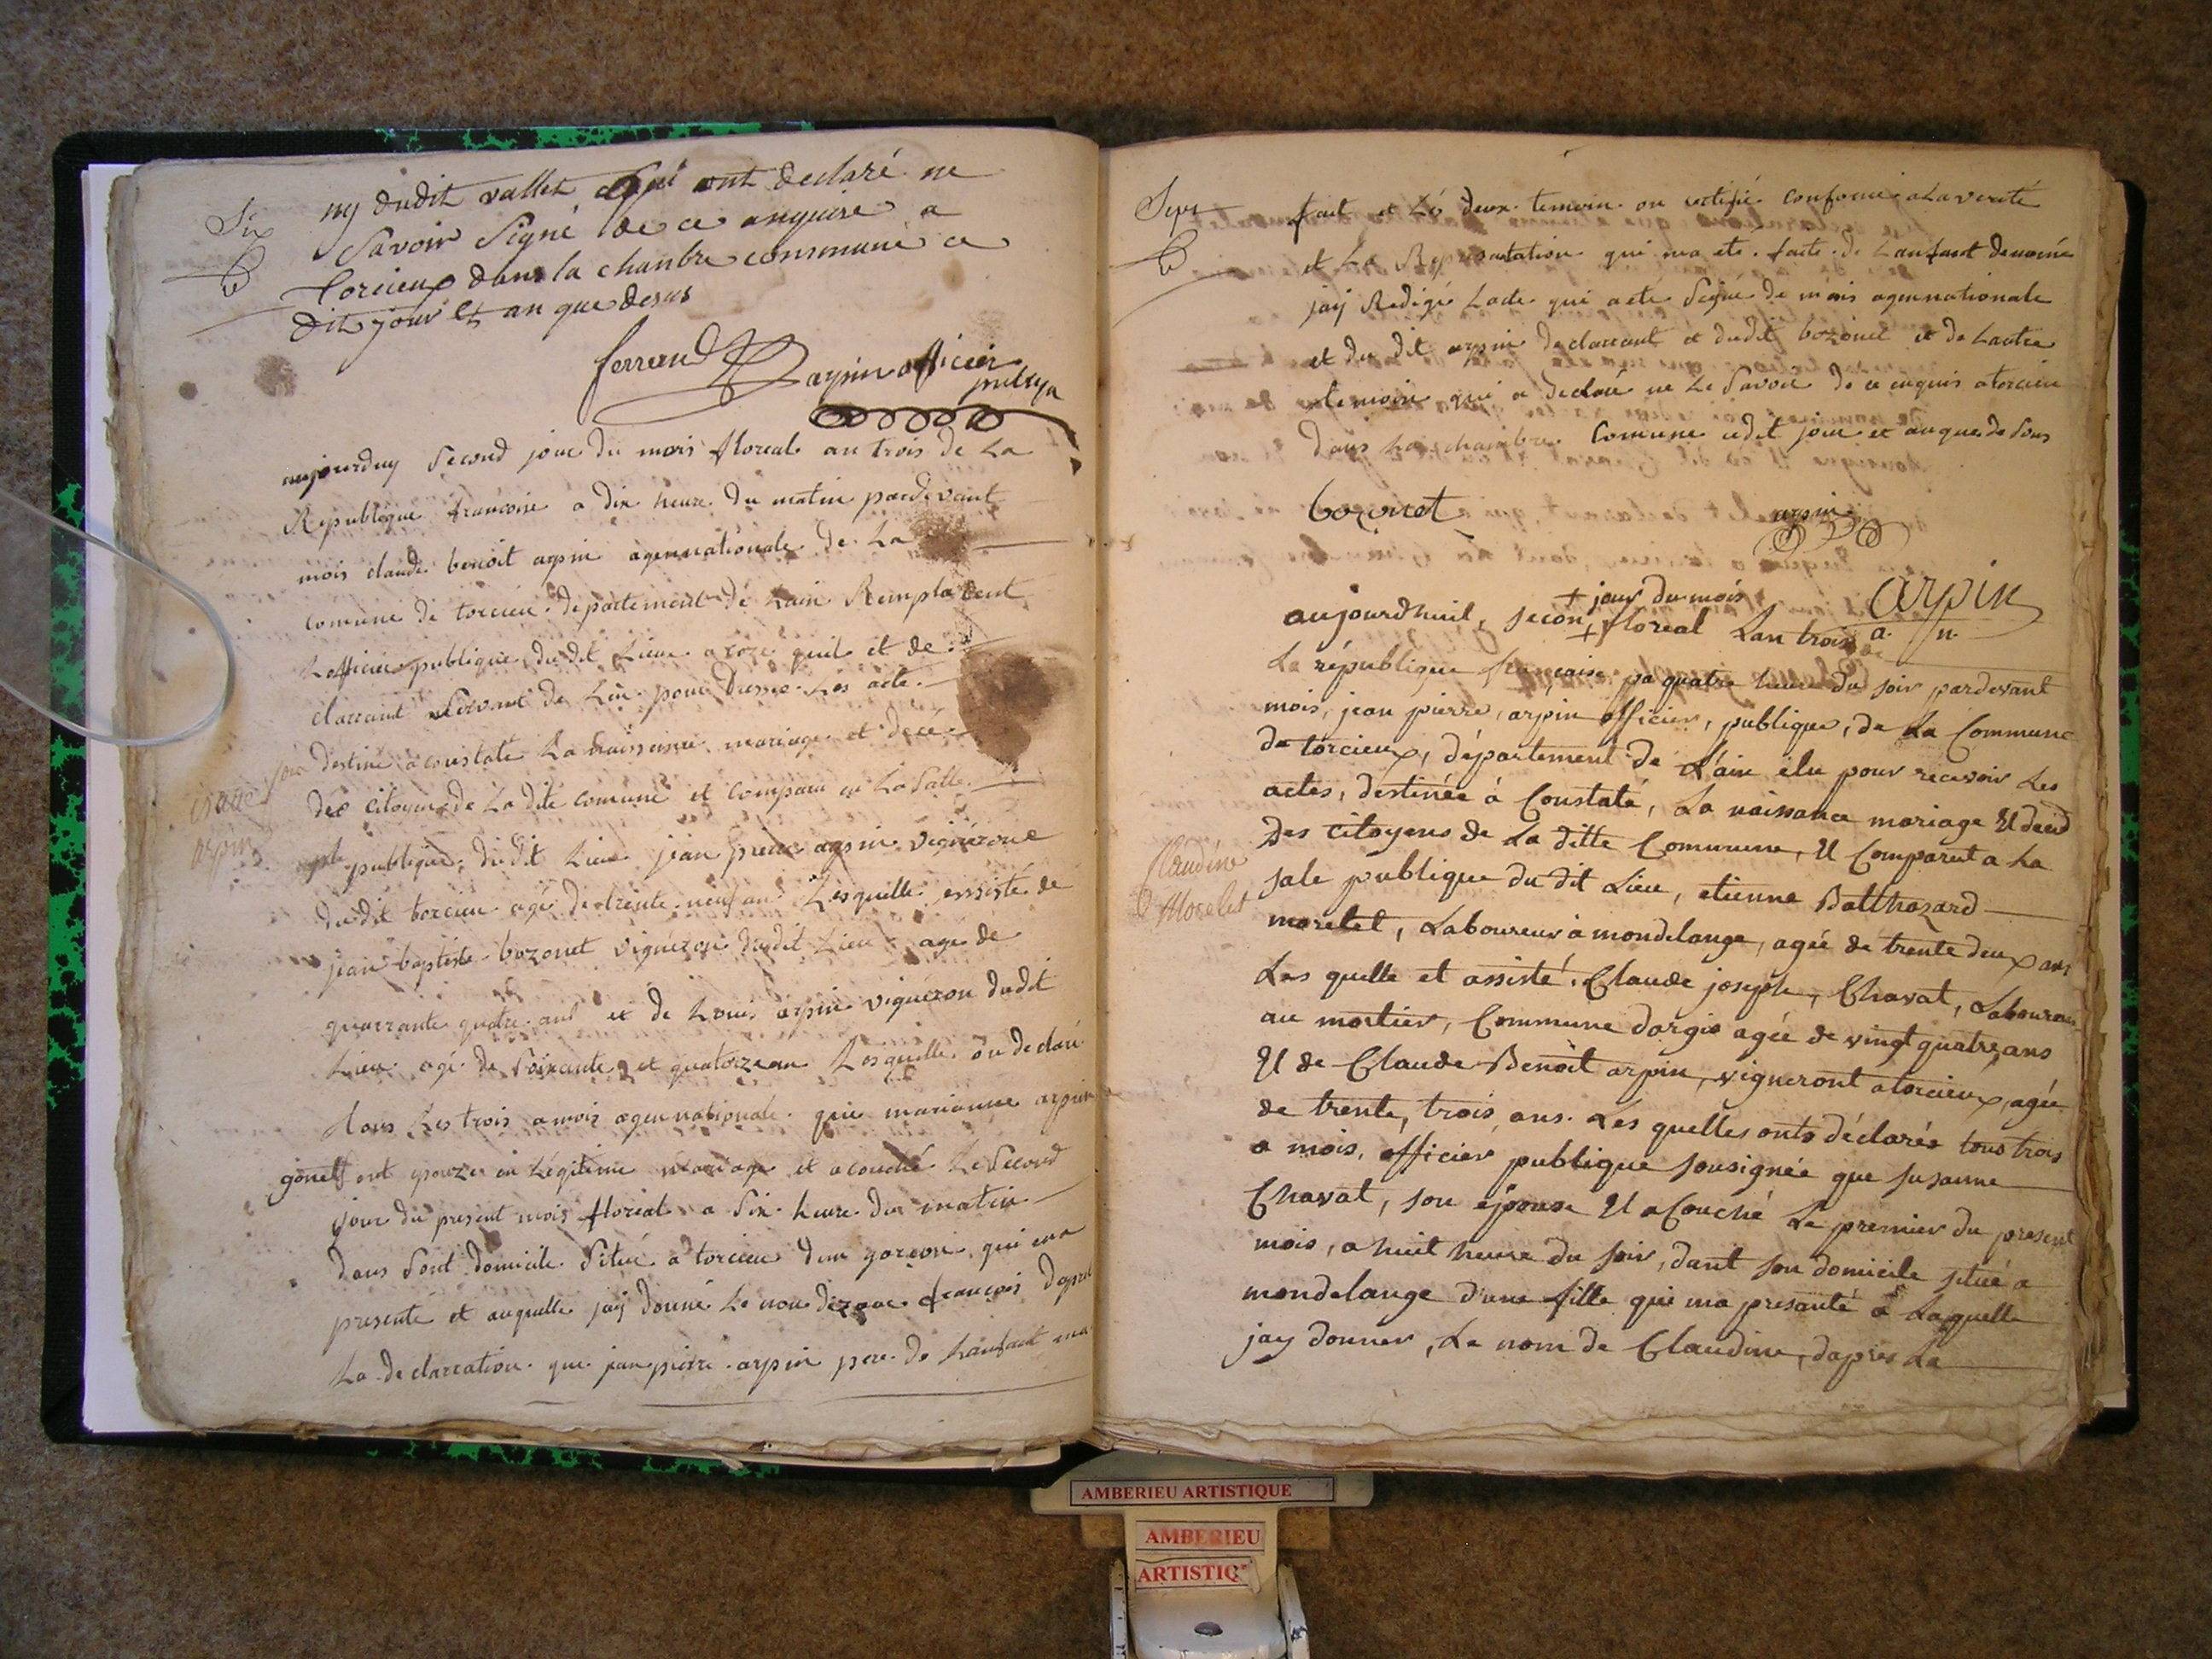 Six
ny dudit vallet, qui ont declaré ne
Savoir Signé de ce anquire a
torcieux dans la chanbre commune ce
dit jour et an que desus
ferrand arpin officier
aujourduy Second jour du mois floreal an trois de La
Republique francoise a dix heure du matin pardevant
mois claude benoit arpin agennationale de La
comune de torcieu departement de Lain Remplacent
Lofficier publique du dit Lieu
clarrant Servant de Lin pour Dresse Les acte
destiné a constate La naissance mariage et décé
des citoyens de La dite comune et comparu en La Salle
publique du dit Lieu jean pierre arpin vignérone
isaac
arpin
du dit torcieu agé de trente neuf an Lesquelle assisté de
jean baptiste bozonet vigneron dudit Lieu age de
quarrante quatre ans et de Louis arpin vigneron dudit
Lieu agé de Soixante et quatorze an Lesquelle on declaré
tous Les trois a mois agennationale que marianne arpin
gonet Son epouze en Légitime mariage et acouché Le Second
jour du present mois floreal a Six heure du matin
dans Sont domicile Situé a torcieu dun garcon qui ma
presenté et auquelle jay donné Le nom dizaac francois dapres
La declarration que jean pierre arpin pere de Lanfant ma
Sept
fait et Lés deux temoin on certifié conforme a La verité
et La Representation qui ma eté faite de Lanfant denomé
jay Redigé Lacte qui a eté Signé de mois agennationale
et du dit arpin declarrant et dudit bozonet et de Lautre
temoin qui a declaré ne Le Savoir de ce enquis a torcieu
dans La chambre Comune cedit jour et an que desous
bozonet arpin
arpin
a. n.
+ jour du mois
aujourdhuil, secon + floreal Lan trois de
La république française, a quatre heure du soir pardevant
mois, jean pierre, arpin officier, publique, de La Commune
de torcieux, département de L'ain élu pour recevoir Les
actes, destinée à Constaté, La naissance mariage Et deud
Des citoyens de La ditte Commune, Et Comparut a La
sale publique du dit Lieu, etienne Balthazard
Claudine
Morelet
morelet, Laboureur a mondelange, agée de trente deux ans
Les quelle et assisté. Claude joseph, Chavat, Laboureur
au mortier, Commune dargis agée de vingt quatre, ans
Et de Claude Benoit arpin, vigneront a torcieux, agée
de trente, trois, ans. Les quelles onts déclarés tous trois
a mois, officier publique sousignée que susanne
Chavat, son épouse Et a Couché Le premier du present
mois, a huit heure du soir, dant son domicile situé a
mondelange d'une fille qui ma presanté a Laquelle
jay donner, Le nom de Claudine, dapres La
AMBERIEU ARTISTIQUE
AMBERIEU
ARTISTIQ